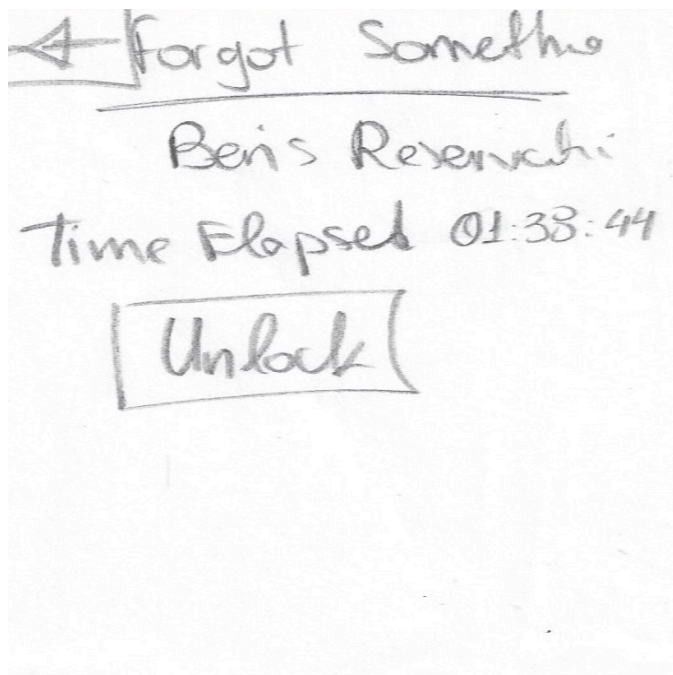 Forgot Somethin
Ben's Reservati
Time Elapsed 01:38:44
Unlock